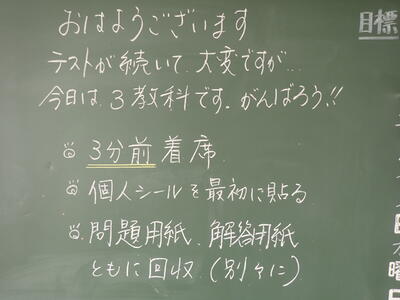 おはようございます
テストが続いて、大変ですが…
今日は、3教科です。がんばろう!!
3分前着席
個人シールを最初に貼る
問題用紙、解答用紙
ともに回収（別々に）
目標
曜